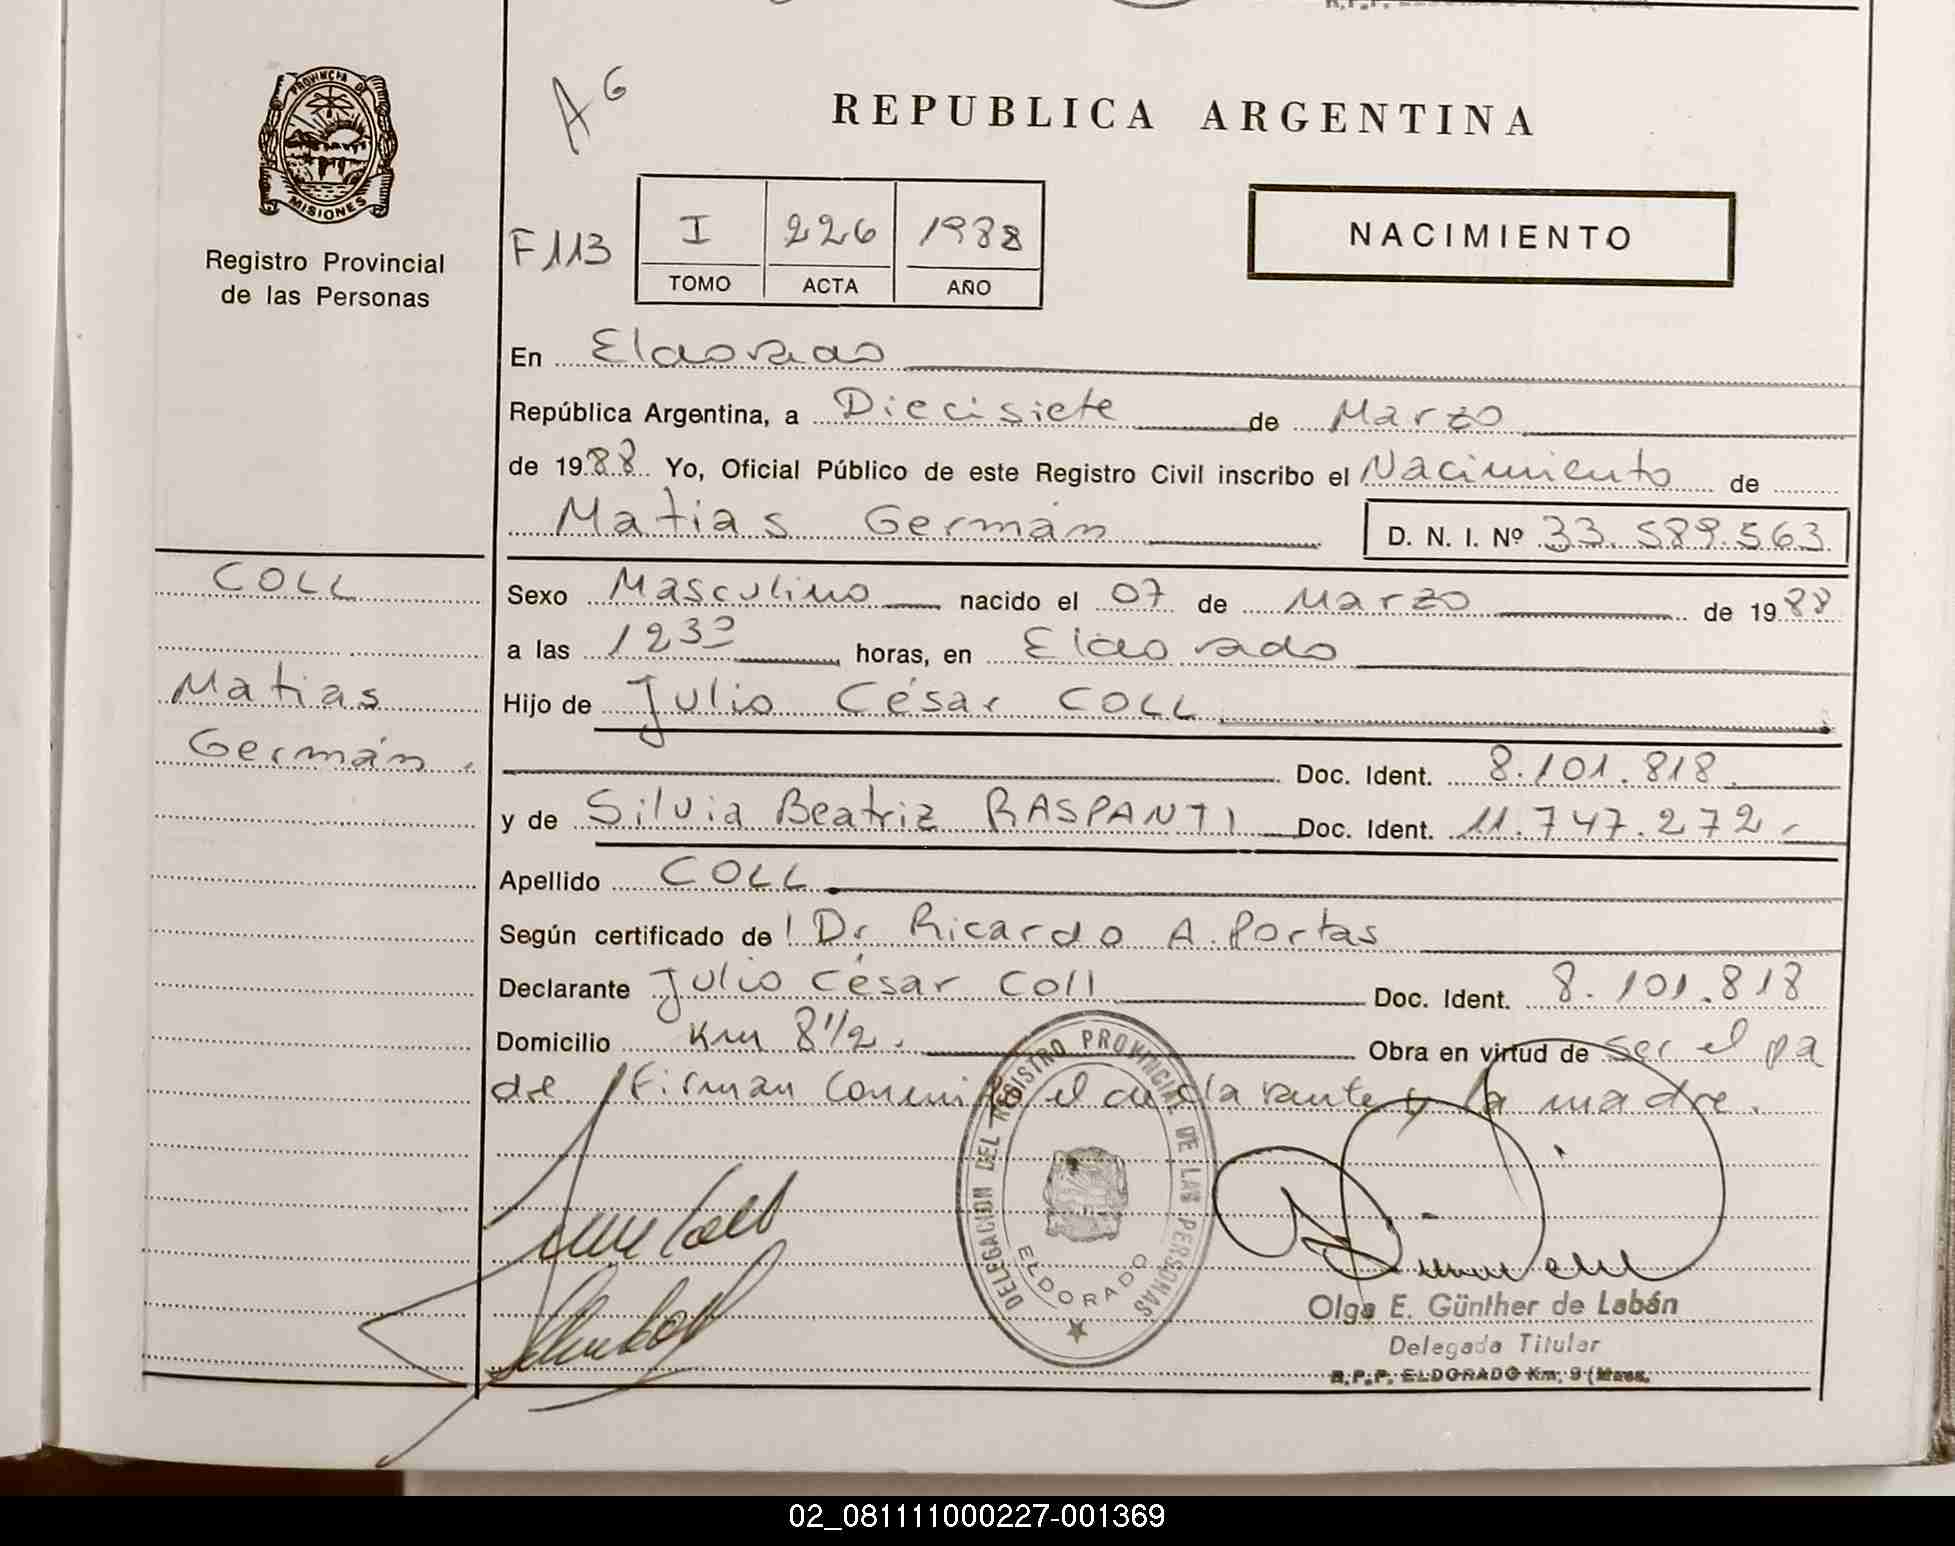 PROVINCIA DE
MISIONES
Registro Provincial
de las Personas
A G
REPUBLICA ARGENTINA
F113
I 226 1988
TOMO ACTA AÑO
NACIMIENTO
En Eldorado
República Argentina, a Diecisiete de Marzo
de 1988 Yo, Oficial Público de este Registro Civil inscribo el Nacimiento de
Matias Germán D. N. I. Nº 33.589.563
COLL
Matias
Germán.
Sexo Masculino nacido el 07 de Marzo de 1988
a las 1230 horas, en Eldorado
Hijo de Julio César COLL
Doc. Ident. 8.101.818.
y de Silvia Beatriz RASPANTI Doc. Ident. 11.747.272.-
Apellido COLL
Según certificado de l Dr Ricardo A. Portas
Declarante Julio César Coll Doc. Ident. 8.101.818
Domicilio Km 8 1/2. Obra en virtud de ser el pa
dre / Firman conmigo el declarante y la madre.
DELEGACION DEL REGISTRO PROVINCIAL DE LAS PERSONAS
ELDORADO
Olga E. Günther de Labán
Delegada Titular
R.P.P. ELDORADO Km. 9 (Mnes.
02_081111000227-001369